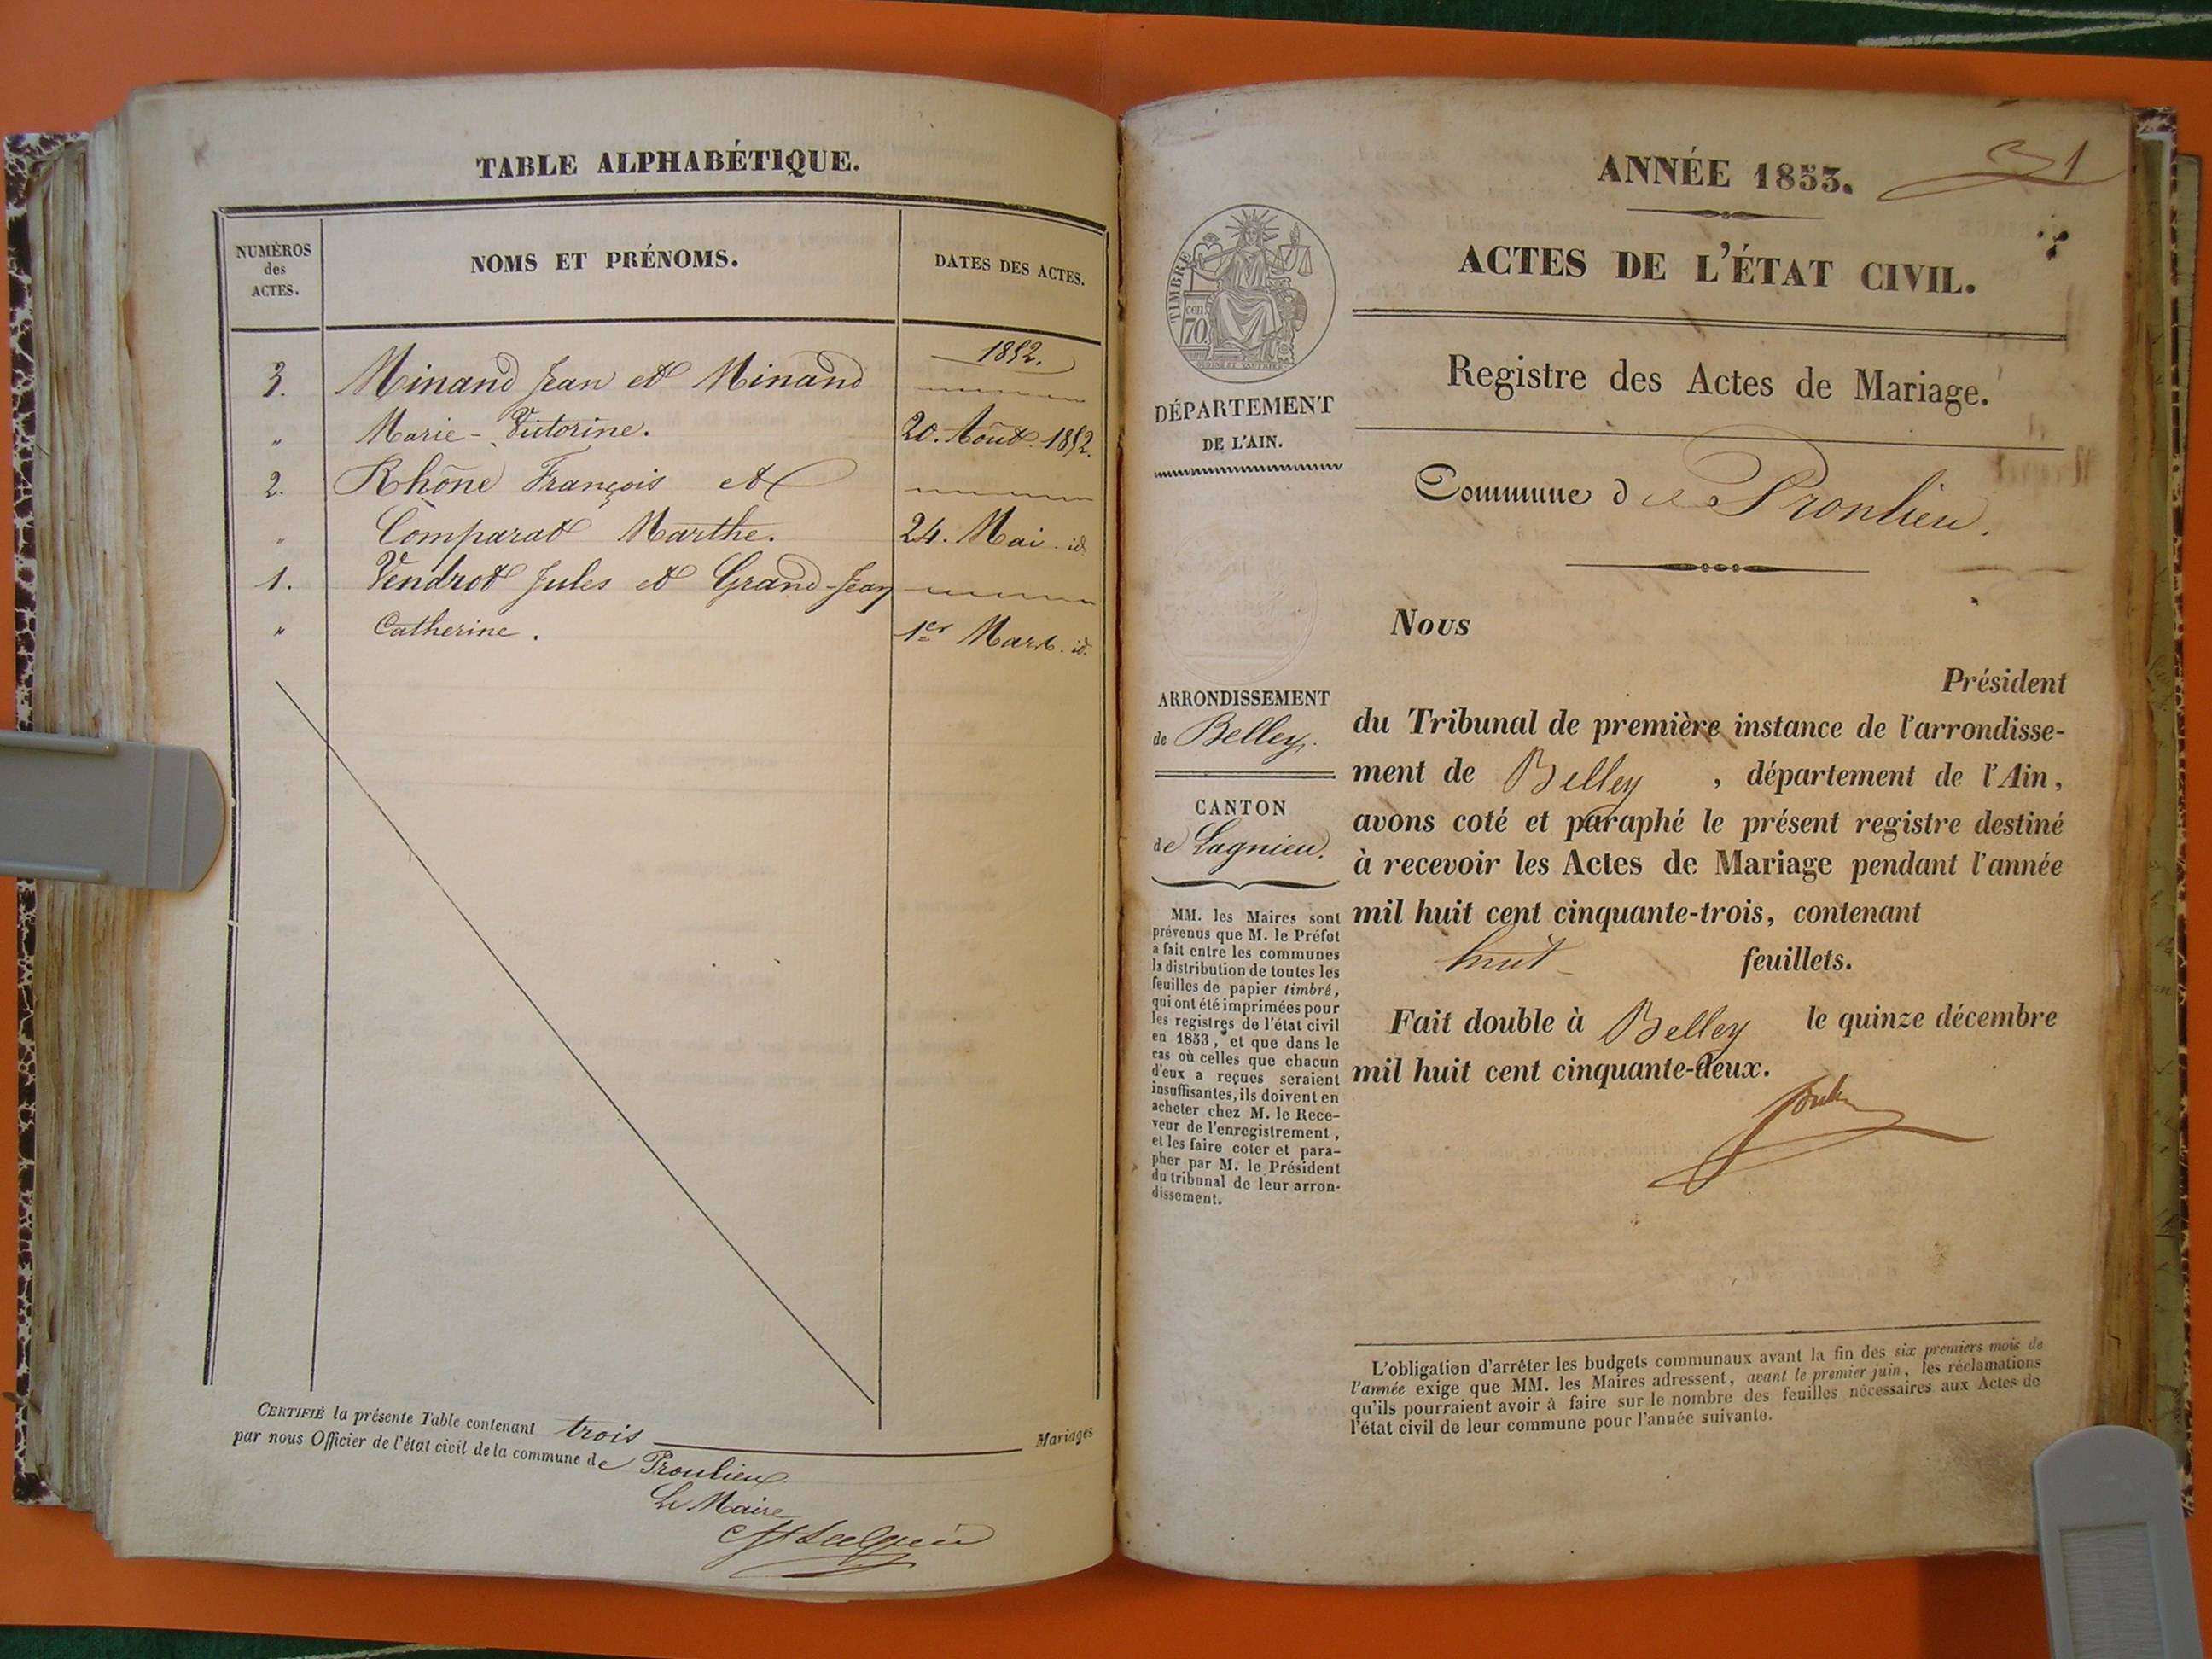 TABLE ALPHABÉTIQUE.
NUMÉROS
des
ACTES.
NOMS ET PRÉNOMS.
DATES DES ACTES.
1852.
3. Minand Jean et Minand
" Marie-Victorine. 20. Août 1852.
2. Rhône François et
" Comparat Marthe. 24. Mai id
1. Vendrot Jules et Grand-Jean
" Catherine. 1er Mars. id.
CERTIFIÉ la présente Table contenant trois Mariages
par nous Officier de l'état civil de la commune de Proulieu
Le Maire
31
ANNÉE 1853.
ACTES DE L'ÉTAT CIVIL.
Registre des Actes de Mariage.
Commune de Proulieu.
TIMBRE
70 cen
DÉPARTEMENT
DE L'AIN.
ARRONDISSEMENT
de Belley.
CANTON
de Lagnieu.
MM. les Maires sont
prévenus que M. le Préfet
a fait entre les communes
la distribution de toutes les
feuilles de papier timbré,
qui ont été imprimées pour
les registres de l'état civil
en 1853, et que dans le
cas où celles que chacun
d'eux a reçues seraient
insuffisantes, ils doivent en
acheter chez M. le Rece-
veur de l'enregistrement,
et les faire coter et para-
pher par M. le Président
du tribunal de leur arron-
dissement.
Nous
Président
du Tribunal de première instance de l'arrondisse-
ment de Belley, département de l'Ain,
avons coté et paraphé le présent registre destiné
à recevoir les Actes de Mariage pendant l'année
mil huit cent cinquante-trois, contenant
huit feuillets.
Fait double à Belley le quinze décembre
mil huit cent cinquante-deux.
L'obligation d'arrêter les budgets communaux avant la fin des six premiers mois de
l'année exige que MM. les Maires adressent, avant le premier juin, les réclamations
qu'ils pourraient avoir à faire sur le nombre des feuilles nécessaires aux Actes de
l'état civil de leur commune pour l'année suivante.